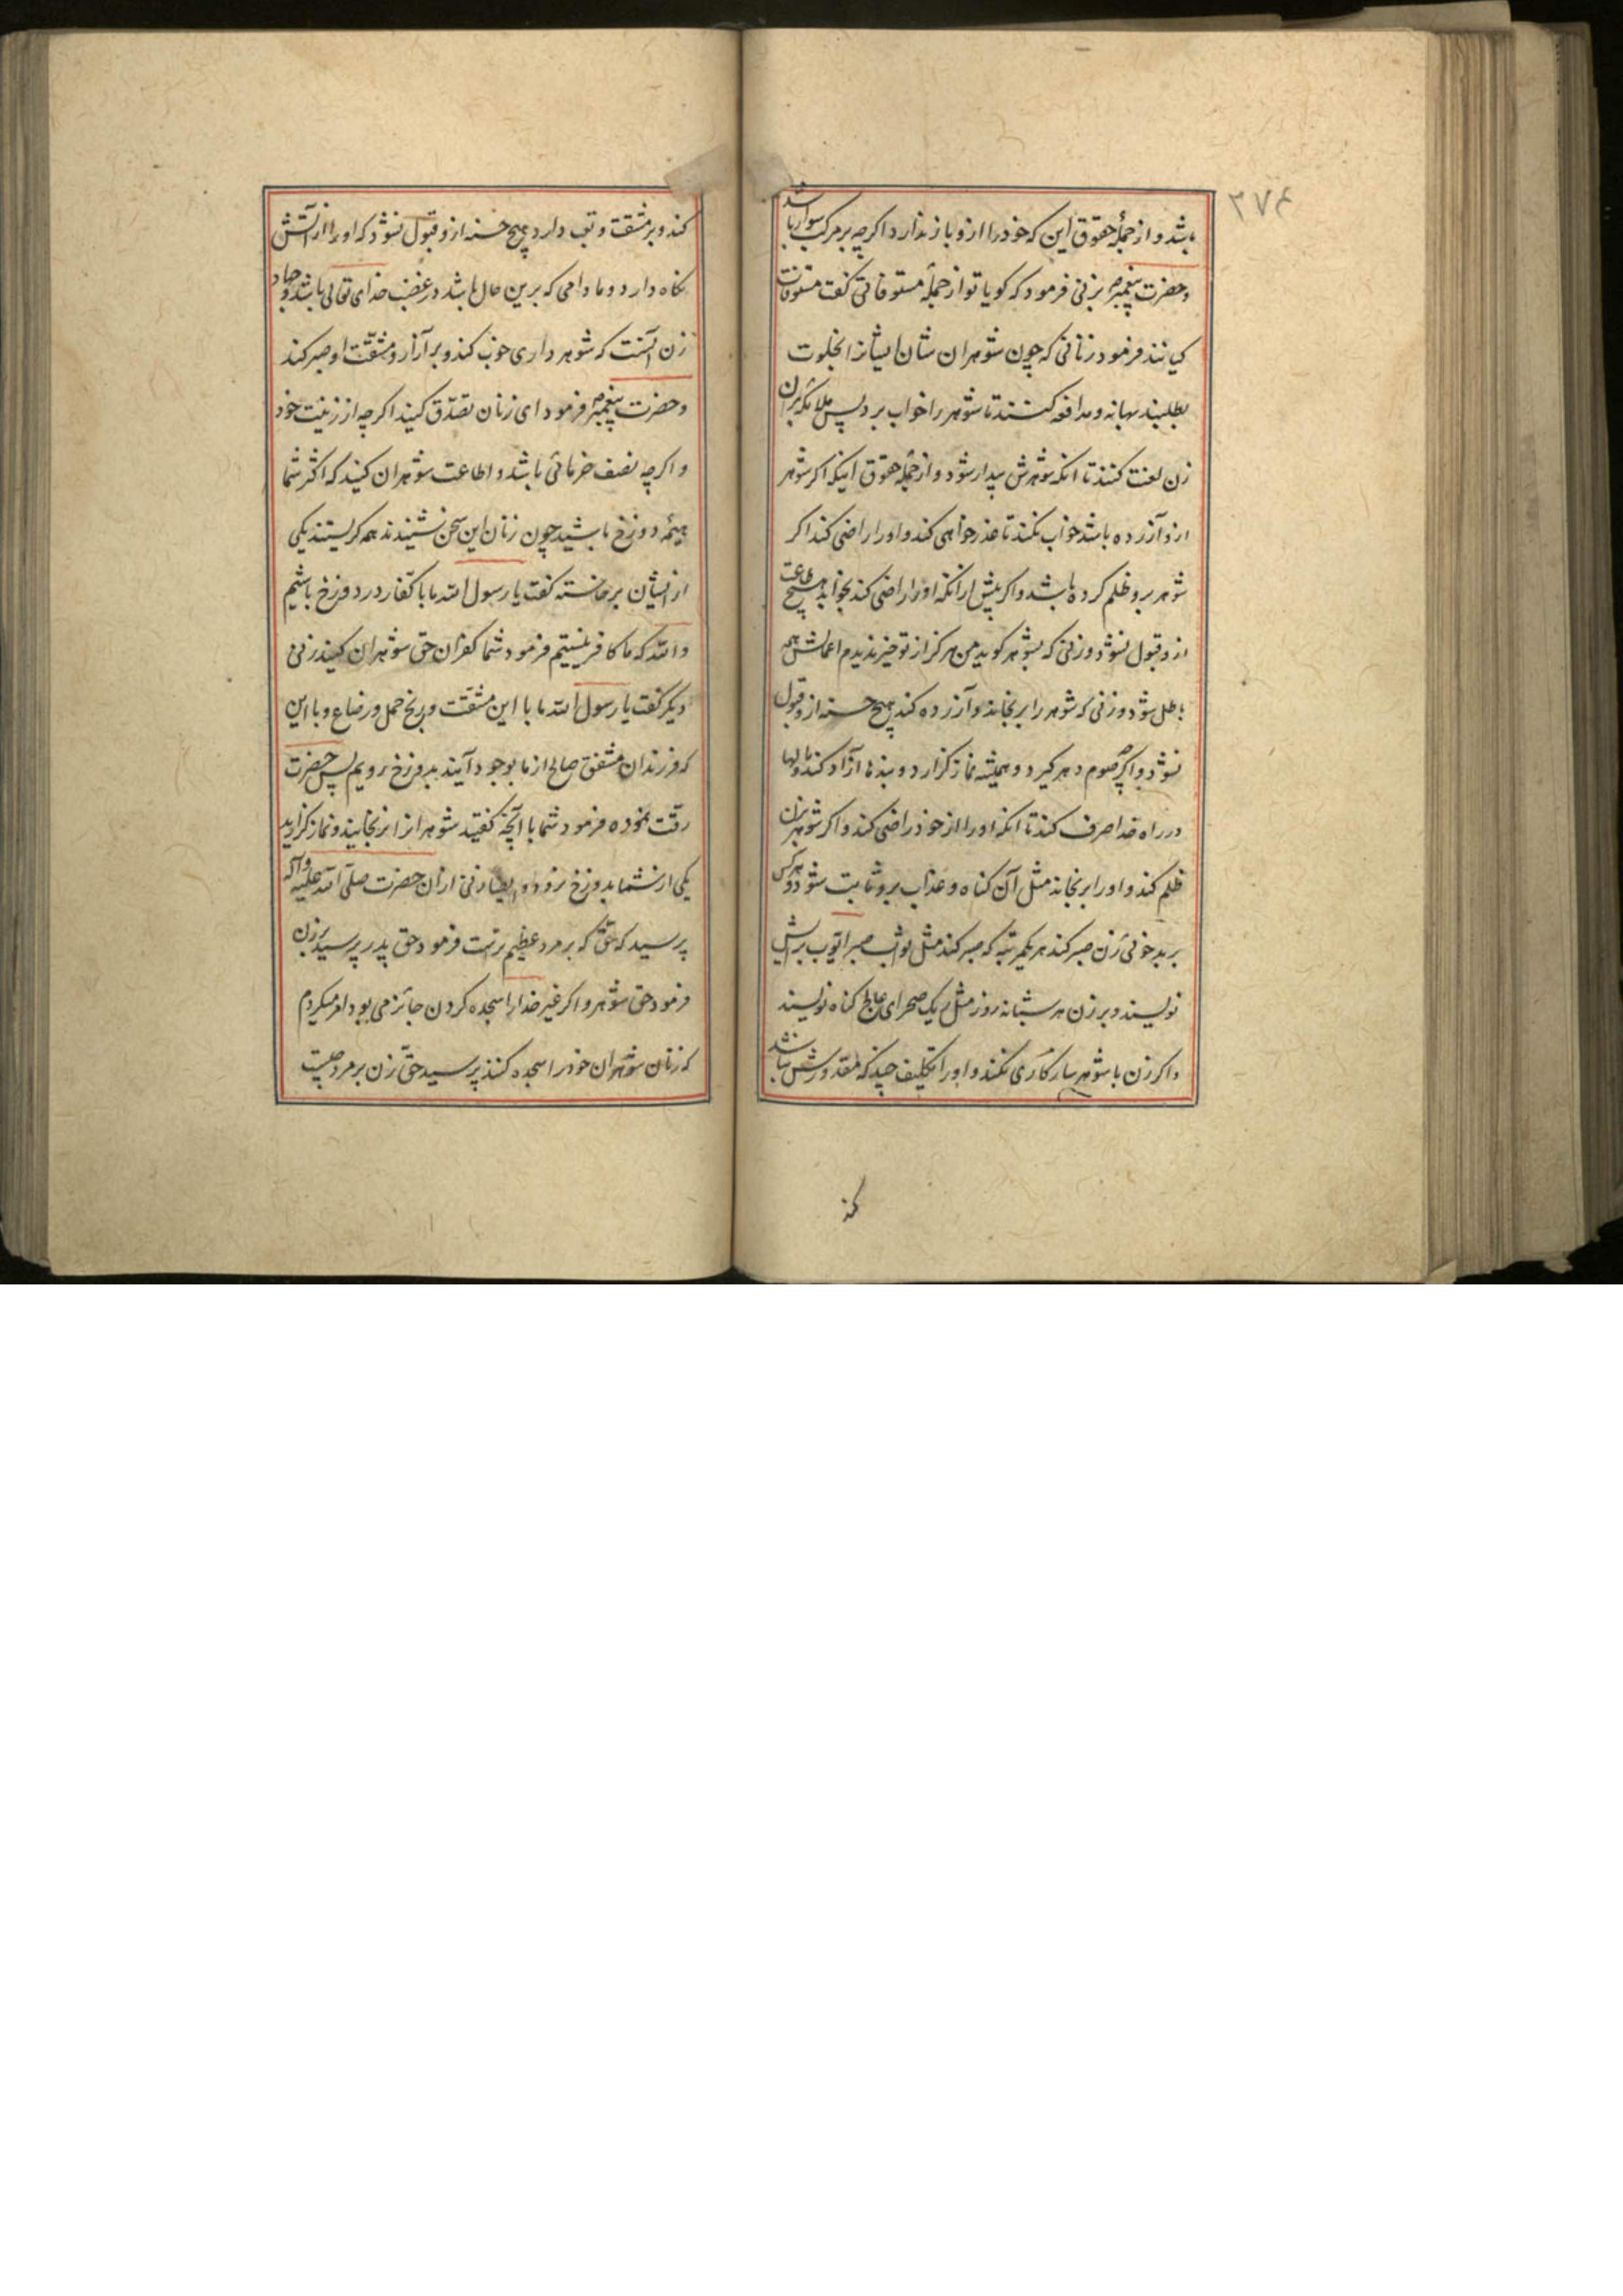 ۳۷۴
باشد و از جملهٔ حقوق این که خود را ازو باز ندارد اگرچه بر مرکب سوار باشد
و حضرت پیغمبر ص بزنی فرمود که گویا تو از جملهٔ مسوفاتی گفت مسوفات
کیانند فرمود زنانی که چون شوهران شان ایشانرا بخلوت
بطلبند بهانه و مدافعه کنند تا شوهر را خواب برد پس ملائکه بران
زن لعنت کنند تا انکه شوهرش بیدار شود و از جمله حقوق اینکه اگر شوهر
ازو آزرده باشد خواب نکند تا عذر خواهی کند و او را راضی کند اگر
شوهر برو ظلم کرده باشد و اگر پیش ازانکه او را راضی کند بخوابد هیچ طاعت
ازو قبول نشود و زنی که بشوهر گوید من هرگز از تو خیر ندیدم اعمالش همه
باطل شود و زنی که شوهر را برنجاند و آزرده کند هیچ حسنه ازو قبول
نشود و اگرچه صوم دهر گیرد و همیشه نماز گزارد و بندها آزاد کند و مالها
در راه خدا صرف کند تا انکه او را از خود راضی کند و اگر شوهر بزن
ظلم کند و او را برنجاند مثل آن گناه و عذاب برو ثابت شود و هرکس
بر بدخوئی زن صبر کند هر یکمرتبه که صبر کند مثل ثواب صبر ایوب برایش
نویسند و بر زن هر شبانه روز مثل ریک صحرای عالج گناه نویسند
و اگر زن با شوهر سازکاری نکند و او را تکلیف چیزی که مقدورش نباشد
کند
کند و بر مشقت و تعب دارد هیچ حسنه ازو قبول نشود که او را از آتش
نگاه دارد و مادامی که برین حال باشد در غضب خدای تعالی باشد و جهاد
زن آنست که شوهر داری خوب کند و بر آزار و مشقّت او صبر کند
و حضرت پیغمبر ص فرمود ای زنان تصدّق کنید اگرچه از زینت خود
و اگرچه نصف خرمائی باشد و اطاعت شوهران کنید که اکثر شما
هیمهٔ دوزخ باشید چون زنان این سخن شنیدند همه گریستند یکی
ازیشان برخاسته گفت یا رسول الله ما با کفّار در دوزخ باشیم
والله که ما کافر نیستیم فرمود شما کفران حق شوهران کنید زنی
دیگر گفت یا رسول الله ما با این مشقّت و رنج حمل و رضاع و با این
که فرزندان مشفق صالح از ما بوجود آیند بدوزخ رویم پس حضرت
رقّت نموده فرمود شما با آنچه گفتید شوهرانرا برنجانید و نماز گزارید
یکی از شما بدوزخ نرود و ایضا زنی ازان حضرت صلّی الله علیه و آله
پرسید که حقّ که بر مرد عظیم ترست فرمود حق پدر پرسید بر زن
فرمود حق شوهر و اگر غیر خدا را سجده کردن جائز می بود امر میکردم
که زنان شوهران خود را سجده کنند پرسید حقّ زن بر مرد چیست